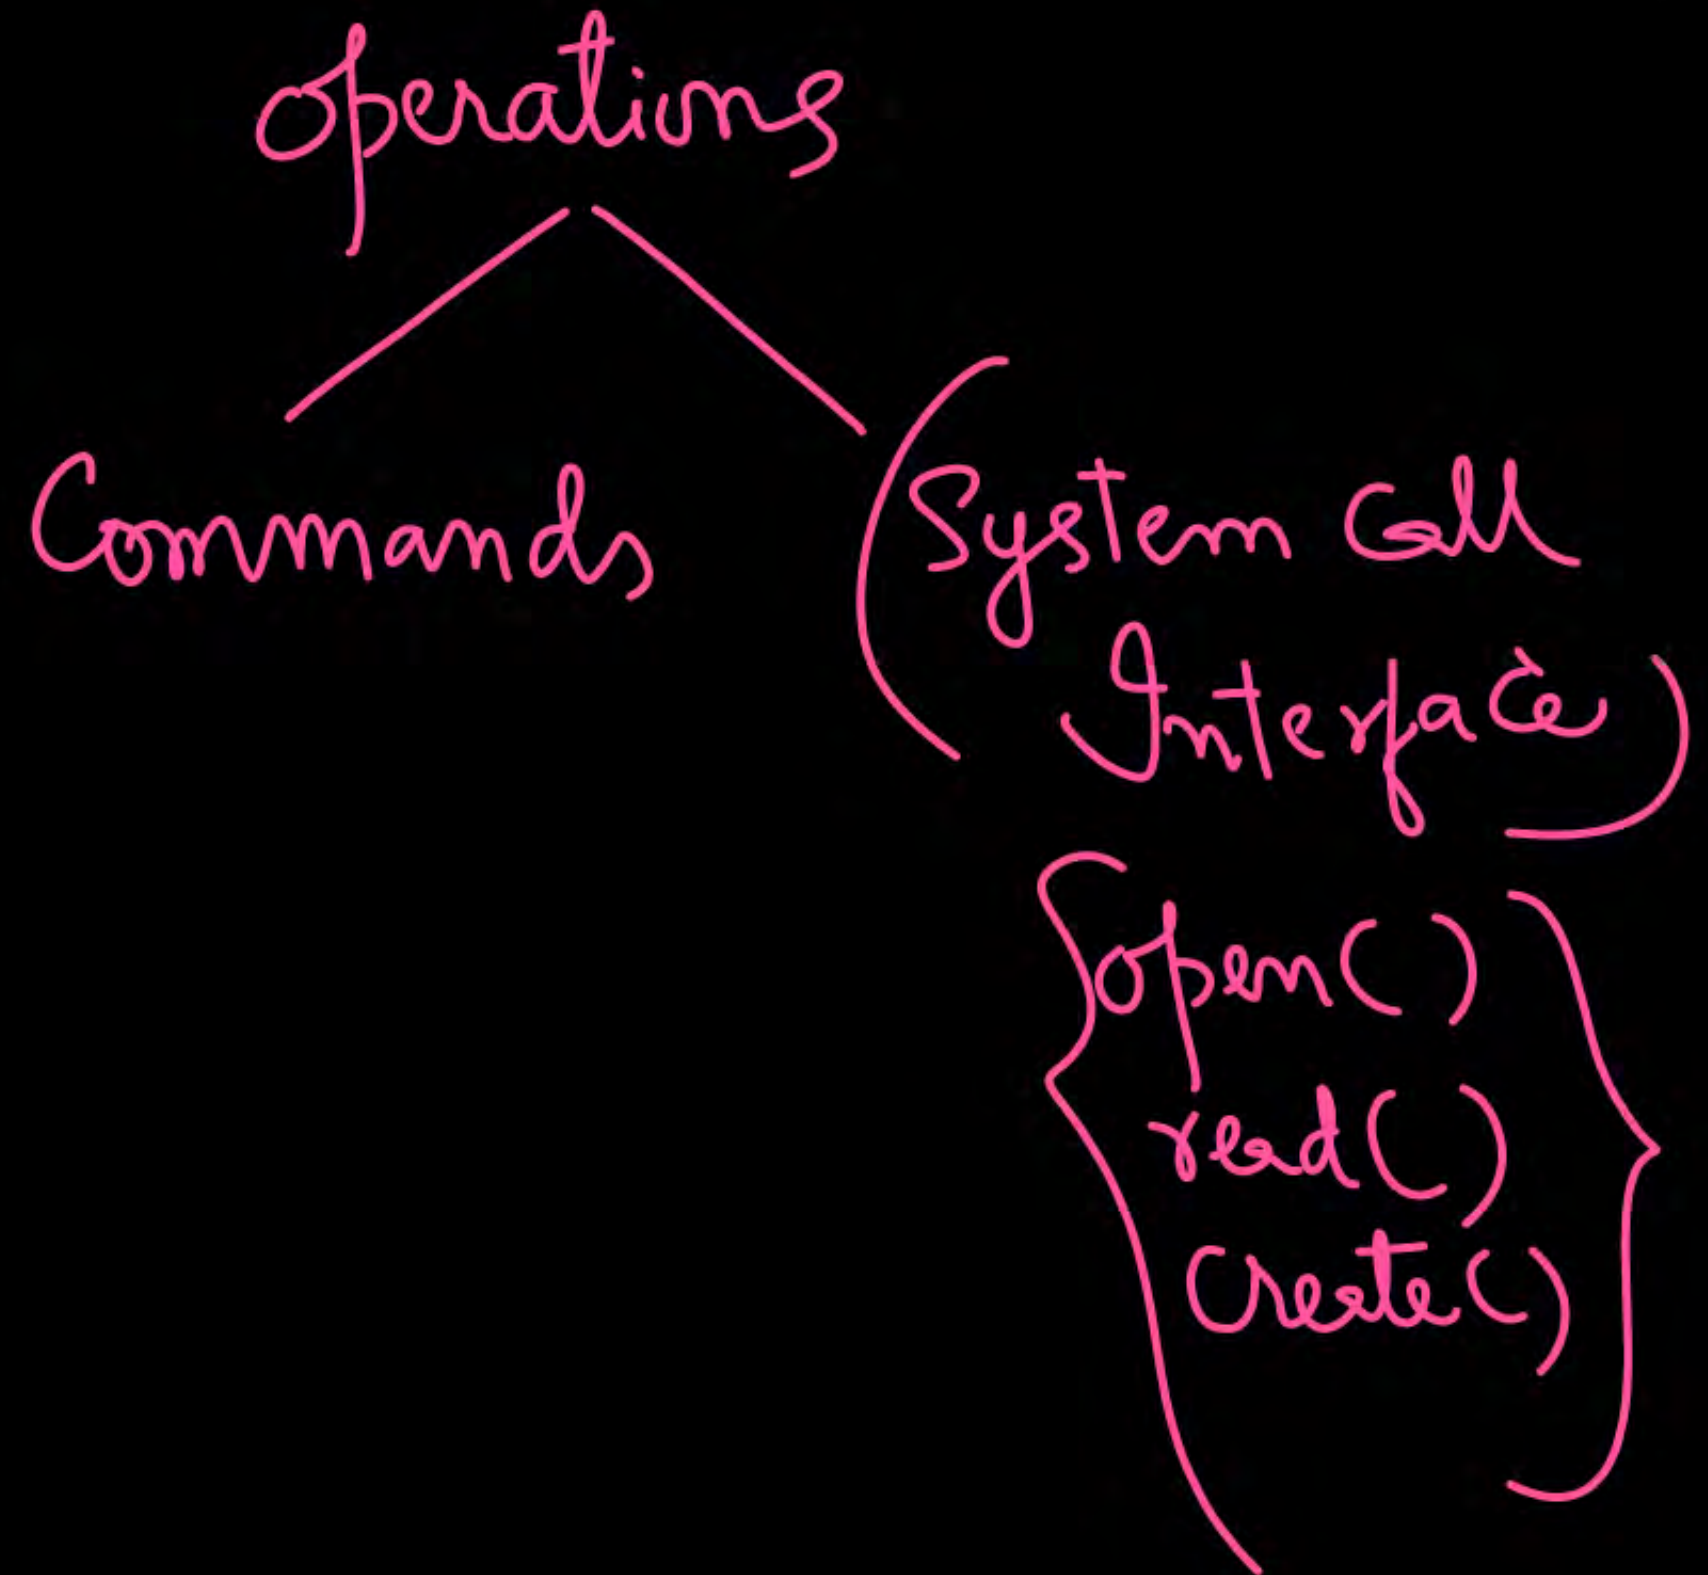 operations
Commands
(System Call
Interface)
{open()
read()
Create()}